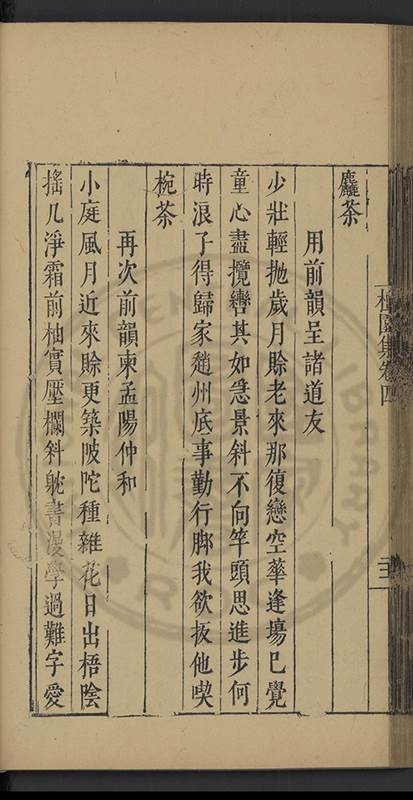 麤茶
用前韻呈諸道友
少壯輕抛歲月賒老來那復戀空華逢塲已覺
童心盡攬轡其如急景斜不向竿頭思進步何
時浪子得歸家趙州底事勤行脚我欲扳他喫
椀茶
再次前韻柬孟陽仲和
小庭風月近來賒更築陂陀種雜花日出梧陰
揺几淨霜前柚實壓欄斜躭書漫學過難字愛
園集卷四